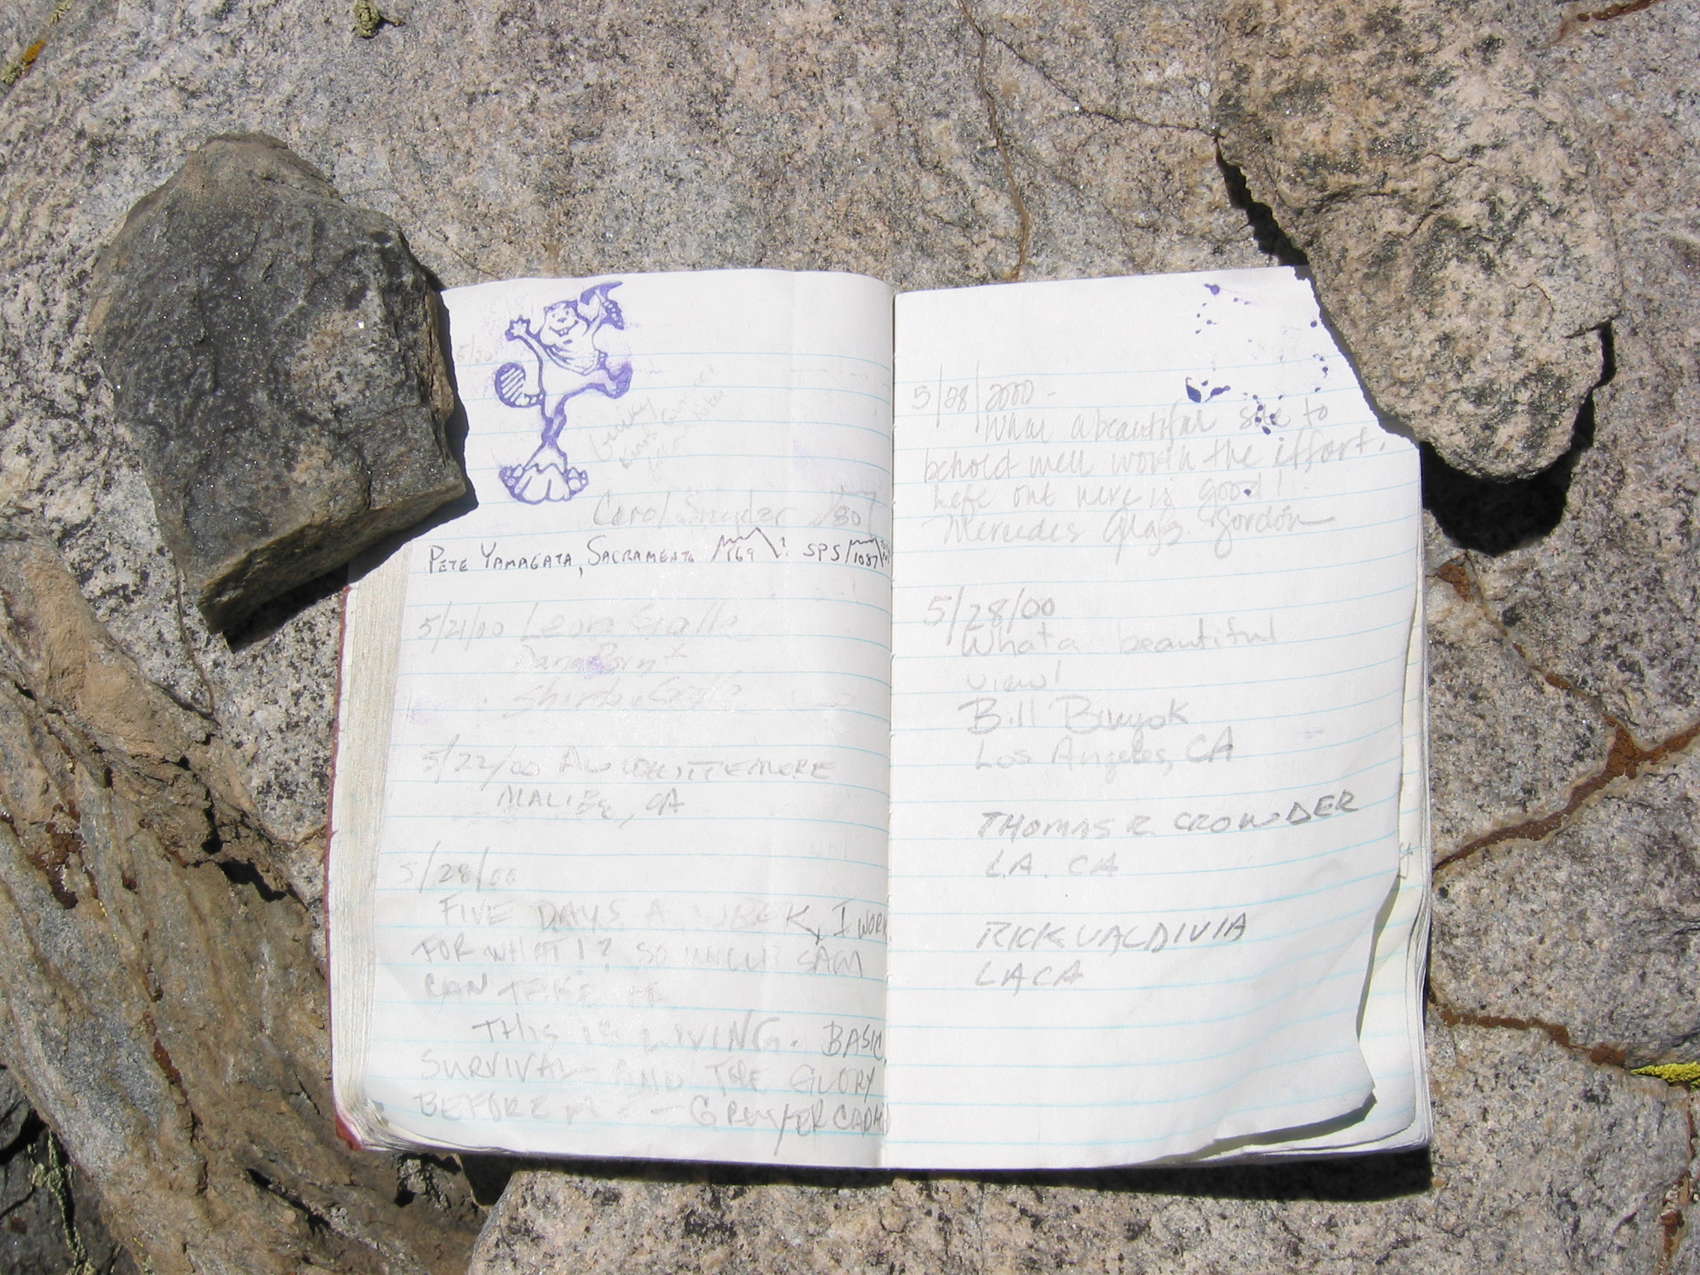 Carol Snyder
PETE YAMAGATA, SACRAMENTO 169 ! SPS 1087
5/21/00 Leora
5/22/00 AL WHITTEMORE
MALIBU, CA
5/28/00
FIVE DAYS A WEEK, I WORK
FOR WHAT!? SO UNCLE SAM
CAN TAKE
THIS IS LIVING. BASIC
SURVIVAL - AND THE GLORY
BEFORE ME -
5/28/2000 -
What a beautiful site to
behold well worth the effort.
Life out here is good!
Mercedes Gordon
5/28/00
What a beautiful
view!
Bill
Los Angeles, CA
THOMAS R. CROWDER
LA. CA
RICK VALDIVIA
LA CA